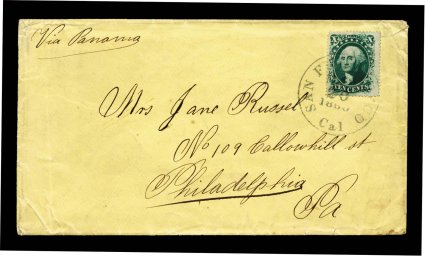 Via Panama
X X
TEN CENTS
SAN F
Cal
Mrs Jane Russel
No 109 Callowhill st
Philadelphia
Pa